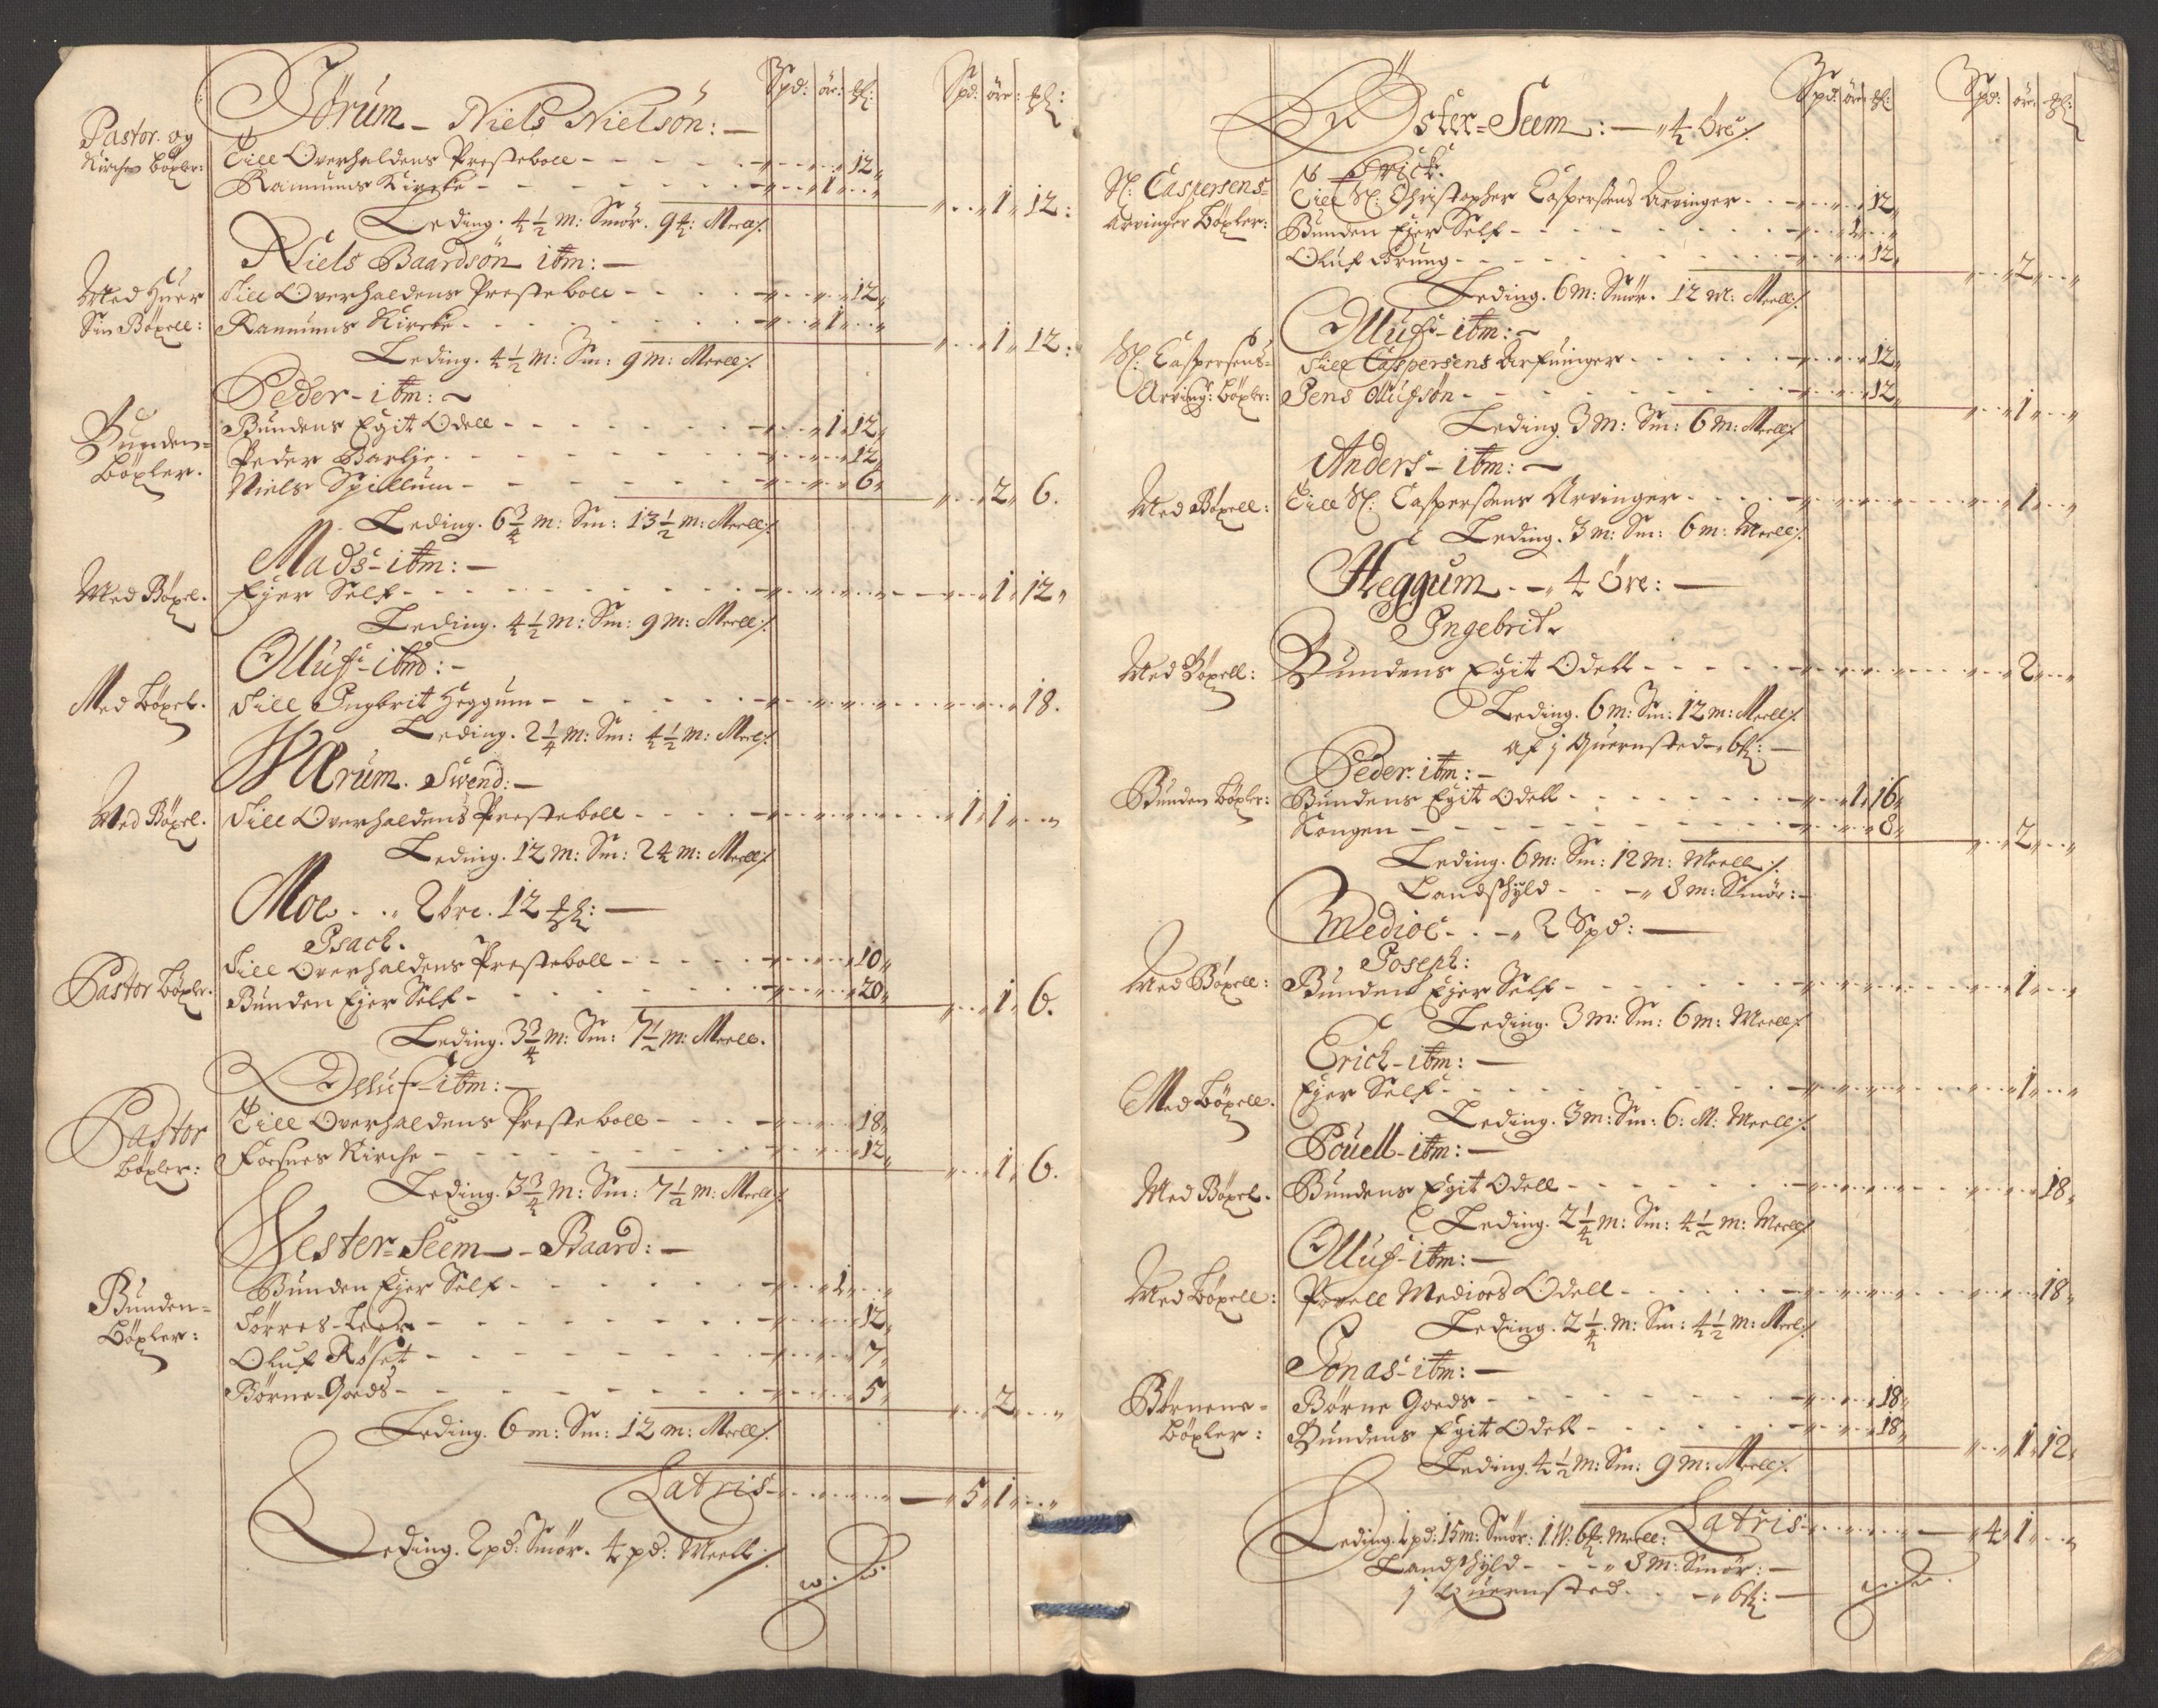 Spd: öre: Spd: öre:
Törum - Niels Nielsön: -
Pastor og
Kirchen Böxler:
Till Overhaldens Presteboll - - - 12
Ramnums Kircke - - - 1 1 12:
Leding. 4½ m: Smör. 9 m: Meel
Niels Baardsön itm: -
Med Huer
Sin Böxell:
Till Overhaldens Presteboll - - - 12
Ramnums Kircke - - - 1 1 12:
Leding. 4½ m: Sm: 9 m: Meell
Peder - itm: ~
Bunden=
Böxler.
Bundens Egit Odell - - - 1 12
Peder Barlje - - - 12
Niels Spillum - - - 6 2 6.
Leding. 6¾ m: Sm: 13½ m: Meell
Mads - itm: -
Med Böxel.
Ejer Self - - - 1 12
Leding. 4½ m: Sm: 9 m: Meell
Olluf - itm: -
Med Böxel.
Till Ingbrit Heggum - - - 18.
Leding. 2¼ m: Sm: 4½ m: Meel
Werum. Swend: -
Med Böxel.
Till Overhaldens Presteboll - - - 1 1
Leding. 12 m: Sm: 24 m: Meell
Moe - - 2 öre. 12
Isach.
Pastor Böxler.
Till Overhaldens Presteboll - - - 10
Bunden Ejer Self - - - 20 1 6.
Leding. 3¾ m: Sm: 7½ m: Meell.
Olluf - itm: -
Pastor
Böxler:
Till Overhaldens Presteboll - - - 18
Foesnes Kirche - - - 12 1 6.
Leding. 3¾ m: Sm: 7½ m: Meell
Wester-Seem - Baard: -
Bunden=
Böxler:
Bunden Ejer Self - - - 1
Törres Leer - - - 12
Oluf Röset - - - 7
Börne-Goeds - - - 5 2
Leding. 6 m: Sm: 12 m: Meell
Latris - - - 5 1
Leding. 2 pd: Smör. 4 pd: Meell
Spd: öre: Spd: öre:
Öster-Seem: - 4 öre
Erick.
Sl: Caspersens
Arvinger Böxler:
Till Sl: Christopher Caspersens Arvinger - - 12
Bunden Ejer Self - - - 1
Oluf Brung - - - 12 2
Leding. 6 m: Smör. 12 M: Meell
Olluf - itm: ~
Sl: Caspersens
Arving: Böxler:
Till Caspersens Arfuinger - - - 12
Jens Ollufsön - - - 12 1
Leding. 3 m: Sm: 6 m: Meell
Anders - itm: -
Med Böxell:
Till Sl: Caspersens Arvinger - - - 1
Leding. 3 m: Sm: 6 m: Meell
Heggum - 4 Öre: -
Ingebrit
Med Böxell:
Bundens Egit Odell - - - 2
Leding. 6 m: Sm: 12 m: Meell
af j Quernsted 6
Peder itm: -
Bunden Böxler:
Bundens Egit Odell - - - 1 16
Kongen - - - 8 2
Leding. 6 m: Sm: 12 m: Meell
Landschyld - - 8 m: Smör: -
Medioe - - 2 Spd: -
Joseph:
Med Böxell:
Bunden Ejer Self - - - 1
Leding. 3 m: Sm: 6 m: Meell
Erich - itm: -
Med Böxell.
Ejer Self - - - 1
Leding. 3 m: Sm: 6: M: Meell
Pouell - itm: -
Med Böxel.
Bundens Egit Odell - - - 18
Leding. 2¼ m: Sm: 4½ m: Meell
Olluf - itm: -
Med Böxell:
Povell Medioes Odell - - - 18
Leding. 2¼ m: Sm: 4½ m: Meel
Jonas - itm: -
Börnene=
Böxler:
Börne Goeds - - - 18
Bundens Egit Odell - - - 18 1 12
Leding. 4½ m: Sm: 9 m: Meell
Latris - - - 4 1
Leding. 1 pd: 15 m: Smör: Meell:
Landschyld - - - 8 m: Smör: -
j Quernsted - - 6